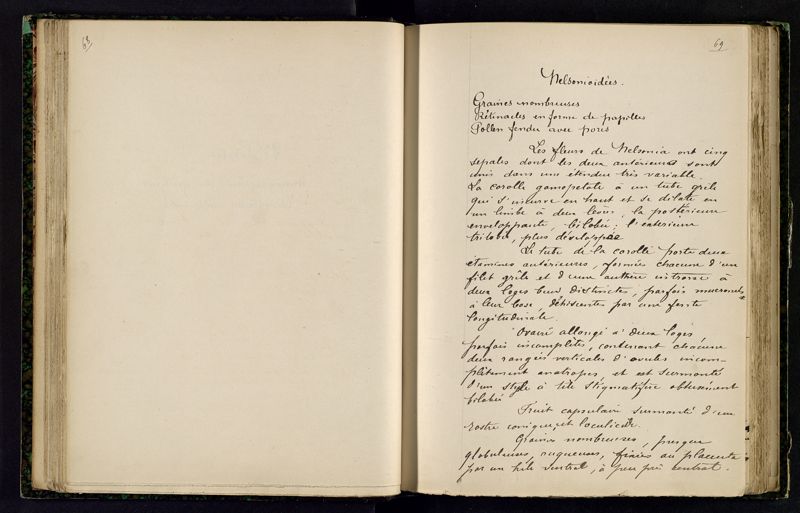 68
69
Nelsonioidées.
Graines nombreuses
Rétinacles en forme de papilles
Pollen fendu avec pores
Les fleurs de Nelsonia ont cinq
sepales dont les deux antérieurs sont
unis dans une étendue très variable.
La corolle gamopetale à un tube grêle
qui s'incurve en haut et se dilate en
un limbe à deux lèvres, la postérieure
enveloppante, bilobée; l'anterieure
trilobée, plus développée
Le tube de la corolle porte deux
etamines antérieures, formées chacune d'un
filet grêle et d'une anthère introrse à
deux loges bien distinctes, parfois mucronées
à leur base, déhiscentes par une fente
longitudinale.
Ovaire allongé à deux loges
parfois incomplètes, contenant chacune
deux rangées verticales d'ovules incom-
plètement anatropes, et est surmonté
d'un style à tête stigmatique obtusément
bilobée
Fruit capsulaire surmonté d'un
rostre conique, et loculicide.
Graines nombreuses, presque
globuleuses, rugueuses, fixées au placenta
par un hile ventral, à peu près central.